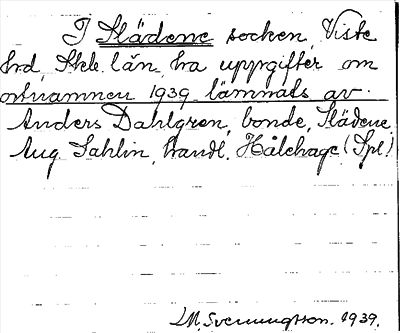 I Slädene socken, Viste
hrd, Skbl. län, ha uppgifter om
ortnamnen 1939 lämnats av:
Anders Dahlgren, bonde, Slädene
Aug Sahlin, handl. Hålehage (Spl)
LM, Svenungsson. 1939.